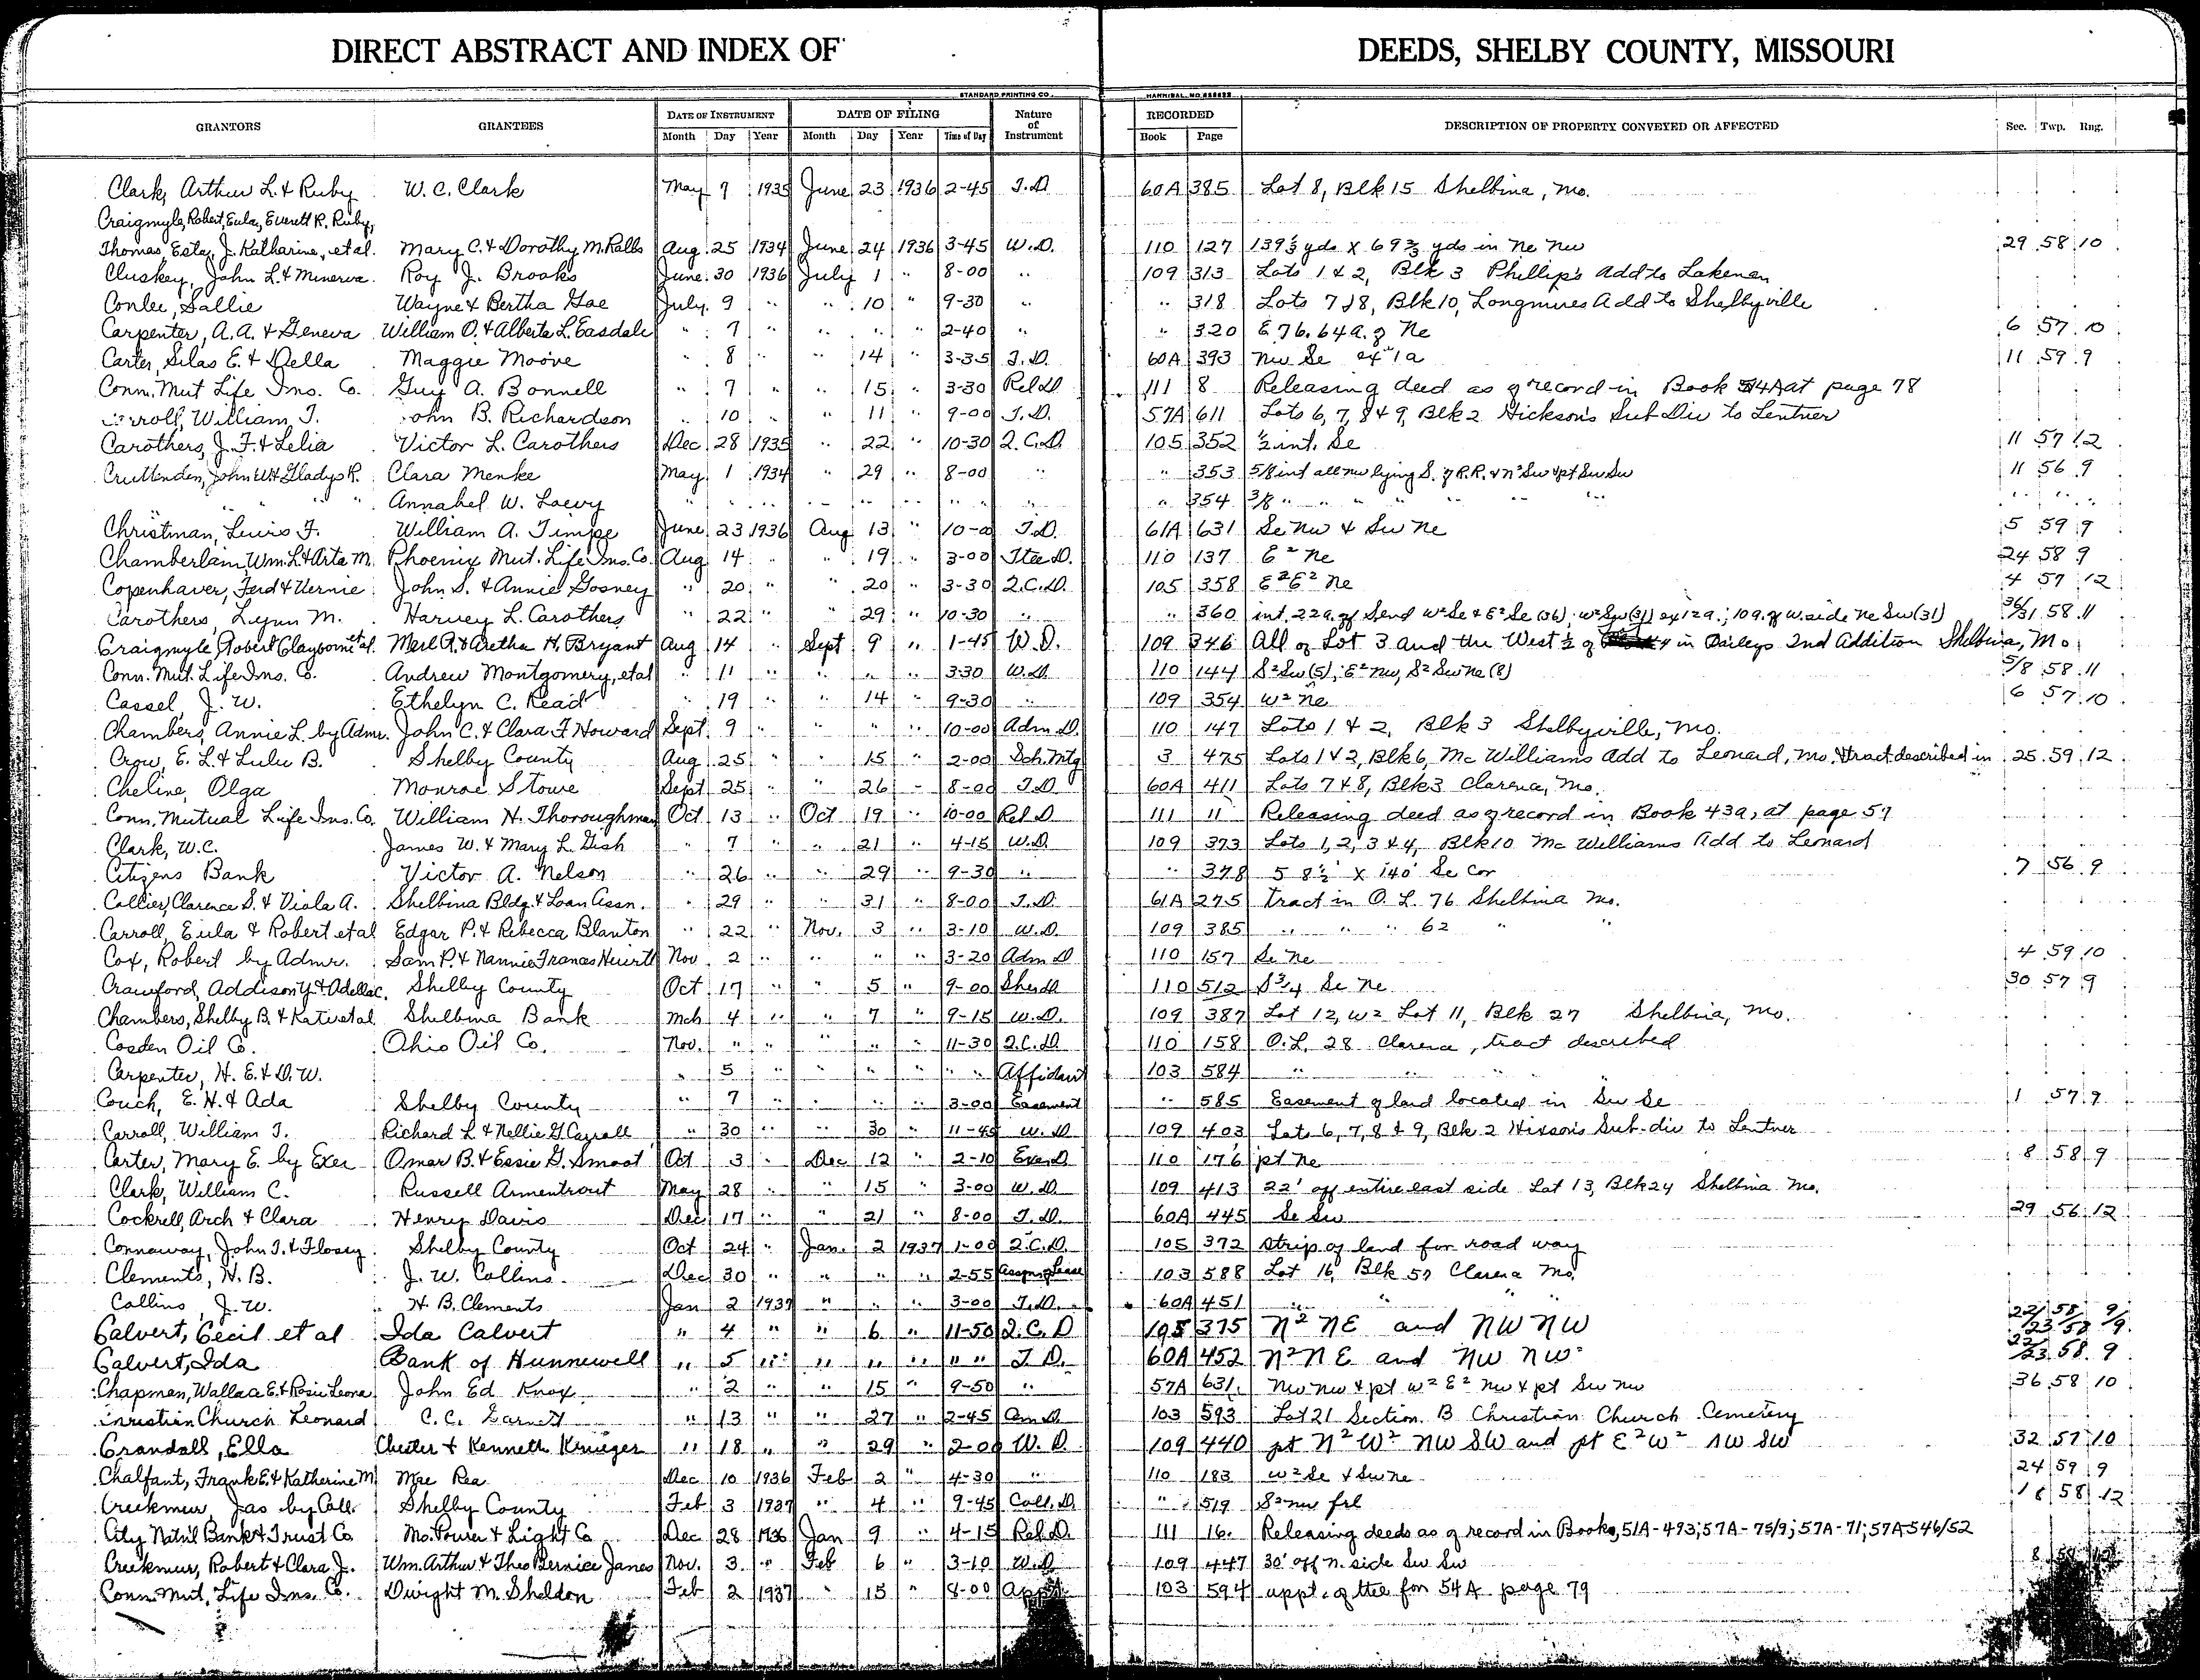 DIRECT ABSTRACT AND INDEX OF DEEDS, SHELBY COUNTY, MISSOURI
STANDARD PRINTING CO. HANNIBAL, NO.
GRANTORS GRANTEES DATE OF INSTRUMENT DATE OF FILING Nature of Instrument RECORDED DESCRIPTION OF PROPERTY CONVEYED OR AFFECTED Sec. Twp. Rng.
Month Day Year Month Day Year Time of Day Book Page
Clark, Arthur L. & Ruby W. C. Clark May 7 1935 June 23 1936 2-45 T.D. 60A 385 Lot 8, Blk 15 Shelbina, Mo.
Craigmyle, Robert, Eula, Everett R. Ruby,
Thomas Esta, J. Katharine, et al. Mary C. & Dorothy M. Ralls Aug. 25 1934 June 24 1936 3-45 W.D. 110 127 139⅓ yds X 69⅔ yds in Ne Nw 29 58 10
Cluskey, John L. & Minerva Roy J. Brooks June 30 1936 July 1 " 8-00 " 109 313 Lots 1 & 2, Blk 3 Phillip's Add to Lakenan
Conlee, Sallie Wayne & Bertha Gae July 9 " " 10 " 9-30 " " 318 Lots 7 & 8, Blk 10, Longmires Add to Shelbyville
Carpenter, A. A. & Geneva William O. & Alberta L. Easdale " 7 " " " " 2-40 " " 320 E 76.64a. of Ne 6 57 10
Carter, Silas E. & Della Maggie Moore " 8 " " 14 " 3-35 T.D. 60A 393 Nw Se ex 1a 11 59 9
Conn. Mut Life Ins. Co. Guy A. Bonnell " 7 " " 15 " 3-30 Rel D 111 8 Releasing deed as of record in Book 54A at page 78
rroll, William T. John B. Richardson " 10 " 11 " 9-00 T.D. 57A 611 Lots 6, 7, 8 & 9, Blk 2 Hickson's Sub Div to Lentner
Carothers, J. F. & Lelia Victor L. Carothers Dec 28 1935 " 22 " 10-30 Q.C.D. 105 352 ½ int. Se 11 57 12
Cruttenden, John W. & Gladys R. Clara Menke May 1 1934 " 29 " 8-00 " " 353 5/8 int all Nw lying S. of R.R. & N² Sw & pt Sw Sw 11 56 9
" " " Annabel W. Loewy " " " " " " " " " 354 3/8 " " " " " " " " "
Christman, Lewis F. William A. Timpe June 23 1936 Aug 13 " 10-00 T.D. 61A 631 Se Nw & Sw Ne 5 59 9
Chamberlain, Wm. L. & Arta M. Phoenix Mut. Life Ins. Co. Aug 14 " " 19 " 3-00 Ttee D. 110 137 E² Ne 24 58 9
Copenhaver, Ferd & Vernie John S. & Annie Gosney " 20 " " 20 " 3-30 Q.C.D. 105 358 E² E² Ne 4 57 12
Carothers, Lynn M. Harvey L. Carothers " 22 " " 29 " 10-30 " 360 int. 22a. off S end W² Se & E² Se (36); W² Sw (31) ex 12a.; 10a. of W. side Ne Sw (31) 36/31 58 11
Craigmyle, Robert Clayborn et al. Merl A. & Aretha H. Bryant Aug 14 " Sept 9 " 1-45 W.D. 109 346 All of Lot 3 and the West ½ of 4 in Daileys 2nd Addition Shelbina, Mo.
Conn. Mut. Life Ins. Co. Andrew Montgomery, et al " 11 " " " " 3-30 W.D. 110 144 S² Sw (5); E² Nw, S² Sw Ne (8) 5/8 58 11
Cassel, J. W. Ethelyn C. Read " 19 " 14 " 9-30 " 109 354 W² Ne 6 57 10
Chambers, Annie L. by Admr. John C. & Clara F. Howard Sept. 9 " " " " 10-00 Adm D. 110 147 Lots 1 & 2, Blk 3 Shelbyville, Mo.
Crow, E. L. & Lulu B. Shelby County Aug 25 " 15 " 2-00 Sch. Mtg 3 475 Lots 1 & 2, Blk 6, Mc Williams Add to Leonard, Mo. & tract described in 25 59 12
Cheline, Olga Monroe Stowe Sept 25 " 26 " 8-00 T.D. 60A 411 Lots 7 & 8, Blk 3 Clarence, Mo.
Conn. Mutual Life Ins. Co. William H. Thoroughman Oct 13 " Oct 19 " 10-00 Rel D 111 11 Releasing deed as of record in Book 43a, at page 57
Clark, W. C. James W. & Mary L. Gish " 7 " 21 " 4-15 W.D. 109 373 Lots 1, 2, 3 & 4, Blk 10 Mc Williams Add to Leonard
Citizens Bank Victor A. Nelson " 26 " " 29 " 9-30 " " 378 58½' X 140' Se Cor 7 56 9
Collier, Clarence S. & Viola A. Shelbina Bldg. & Loan Assn. " 29 " " 31 " 8-00 T.D. 61A 275 tract in O. L. 76 Shelbina Mo.
Carroll, Eula & Robert et al Edgar P. & Rebecca Blanton " 22 " Nov. 3 " 3-10 W.D. 109 385 " " " 62 " "
Cox, Robert by Admr. Sam P. & Nannie Frances Hewitt Nov. 2 " " " " 3-20 Adm D 110 157 Se Ne 4 59 10
Crawford, Addison Y. & Adella C. Shelby County Oct 17 " " 5 " 9-00 Sher D 110 512 S¾ Se Ne 30 57 9
Chambers, Shelby B. & Kati et al Shelbina Bank Mch 4 " " 7 " 9-15 W.D. 109 387 Lot 12, W² Lot 11, Blk 27 Shelbina, Mo.
Cosden Oil Co. Ohio Oil Co. Nov. " " " " " 11-30 Q.C.D. 110 158 O.L. 28 Clarence, tract described
Carpenter, H. E. & D. W. " 5 " " " " " " Affidavit 103 584 " " "
Couch, E. H. & Ada Shelby County " 7 " " " " 3-00 Easement " 585 Easement of land located in Sw Se 1 57 9
Carroll, William T. Richard L. & Nellie G. Carroll " 30 " 30 " 11-45 W.D 109 403 Lots 6, 7, 8 & 9, Blk 2 Hixson's Sub-div to Lentner
Carter, Mary E. by Exer Omar B. & Essie G. Smoot Oct 3 " Dec 12 " 2-10 Exe. D 110 176 pt Ne 8 58 9
Clark, William C. Russell Armentrout May 28 " " 15 " 3-00 W.D. 109 413 22' off entire east side Lot 13, Blk 24 Shelbina Mo.
Cockrell, Arch & Clara Henry Davis Dec 17 " " 21 " 8-00 T.D. 60A 445 Se Sw 29 56 12
Connaway, John T. & Flossy Shelby County Oct 24 " Jan. 2 1937 1-00 Q.C.D. 105 372 strip of land for road way
Clements, H. B. J. W. Collins Dec 30 " " " " 2-55 Assgn of Lease 103 588 Lot 16, Blk 57 Clarence Mo.
Collins, J. W. H. B. Clements Jan 2 1937 " " " 3-00 T.D. 60A 451 " " "
Calvert, Cecil et al Ida Calvert " 4 " " 6 " 11-50 Q.C.D 105 375 N² NE and NW NW 22/23 58/58 9/9
Calvert, Ida Bank of Hunnewell " 5 " " " " " " T.D. 60A 452 N² NE and NW NW 22/23 58 9
Chapman, Wallace E. & Rosie Leona John Ed Knox " 2 " 15 " 9-50 " 57A 631 Nw Nw & pt W² E² Nw & pt Sw Nw 36 58 10
Christian Church Leonard C. C. Garnett " 13 " " 27 " 2-45 Cem D. 103 593 Lot 21 Section B Christian Church Cemetery
Crandall, Ella Chester & Kenneth Krueger " 18 " " 29 " 2-00 W.D. 109 440 pt N² W² NW SW and pt E² W² NW SW 32 57 10
Chalfant, Frank E. & Katherine M Mae Rea Dec 10 1936 Feb 2 " 4-30 " 110 183 W² Se & Sw Ne 24 59 9
Creekmur, Jas by Coll. Shelby County Feb 3 1937 " 4 " 9-45 Coll. D. " 519 S² Nw frl 18 58 12
City Nat'l Bank & Trust Co Mo. Power & Light Co Dec 28 1936 Jan 9 " 4-15 Rel. D. 111 16 Releasing deeds as of record in Books, 51A-493; 57A-75/9; 57A-71; 57A 546/52
Creekmur, Robert & Clara J. Wm. Arthur & Theo Bernice Janes Nov. 3 " Feb 6 " 3-10 W.D 109 447 30' off N. side Sw Sw 8 58
Conn. Mut. Life Ins. Co. Dwight M. Sheldon Feb 2 1937 " 15 " 8-00 Appt 103 594 appt. of ttee for 54A page 79